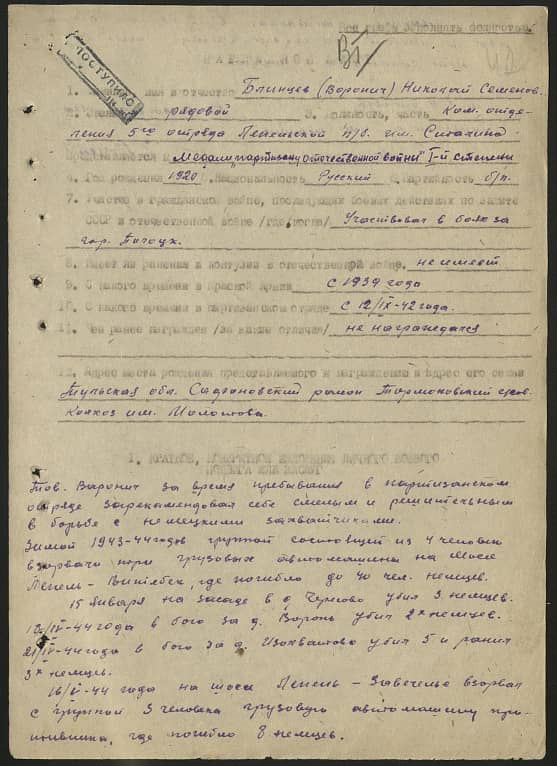 Все графы заполнять полностью
ПОСТУПИЛО
1. имя и отчество Блинцев (Воронич) Николай Семенов.
2. рядовой 3. Должность, часть Ком. отде-
ления 5го отряда Лепельской п/б. им. Сталина
Представляется к Медали "партизану отечественной войны" I-й степени
4. Год рождения 1920. Национальность Русский 6. Партийность б/п.
7. Участие в гражданской войне, последующих боевых действиях по защите
СССР и отечественной войне /где, когда/ Участвовал в боях за
гор.
8. Имеет ли ранения и контузии в отечественной войне. не имеет
9. С какого времени в Красной Армии с 1939 года
10. С какого времени в партизанском отряде с 12/IX-42 года.
11. Чем ранее награжден /за какие отличия/ не награждался
12. Адрес места рождения представляемого к награждению и адрес его семьи
Тульская обл. район
Колхоз им. Молотова.
I. КРАТКОЕ, КОНКРЕТНОЕ ИЗЛОЖЕНИЕ ЛИЧНОГО БОЕВОГО
ПОДВИГА ИЛИ ЗАСЛУГ
Тов. Воронич за время пребывания в партизанском
отряде зарекомендовал себя смелым и решительным
в борьбе с немецкими захватчиками.
Зимой 1943-44 годов группой состоящей из 4 человек
взорвали пару грузовых автомашины на шосе
Лепель - Витебск, где погибло до 40 чел. немцев.
15 Января на засаде в д. убил 3 немцев.
-44 года в бою за д. Воронь убил 2х немцев.
21/IV-44 года в бою за д. убил 5 и ранил
3х немцев.
-44 года на шоса Лепель - Завечелье взорвал
с группой 3 человека грузовую автомашину про-
тивника, где погибло 8 немцев.